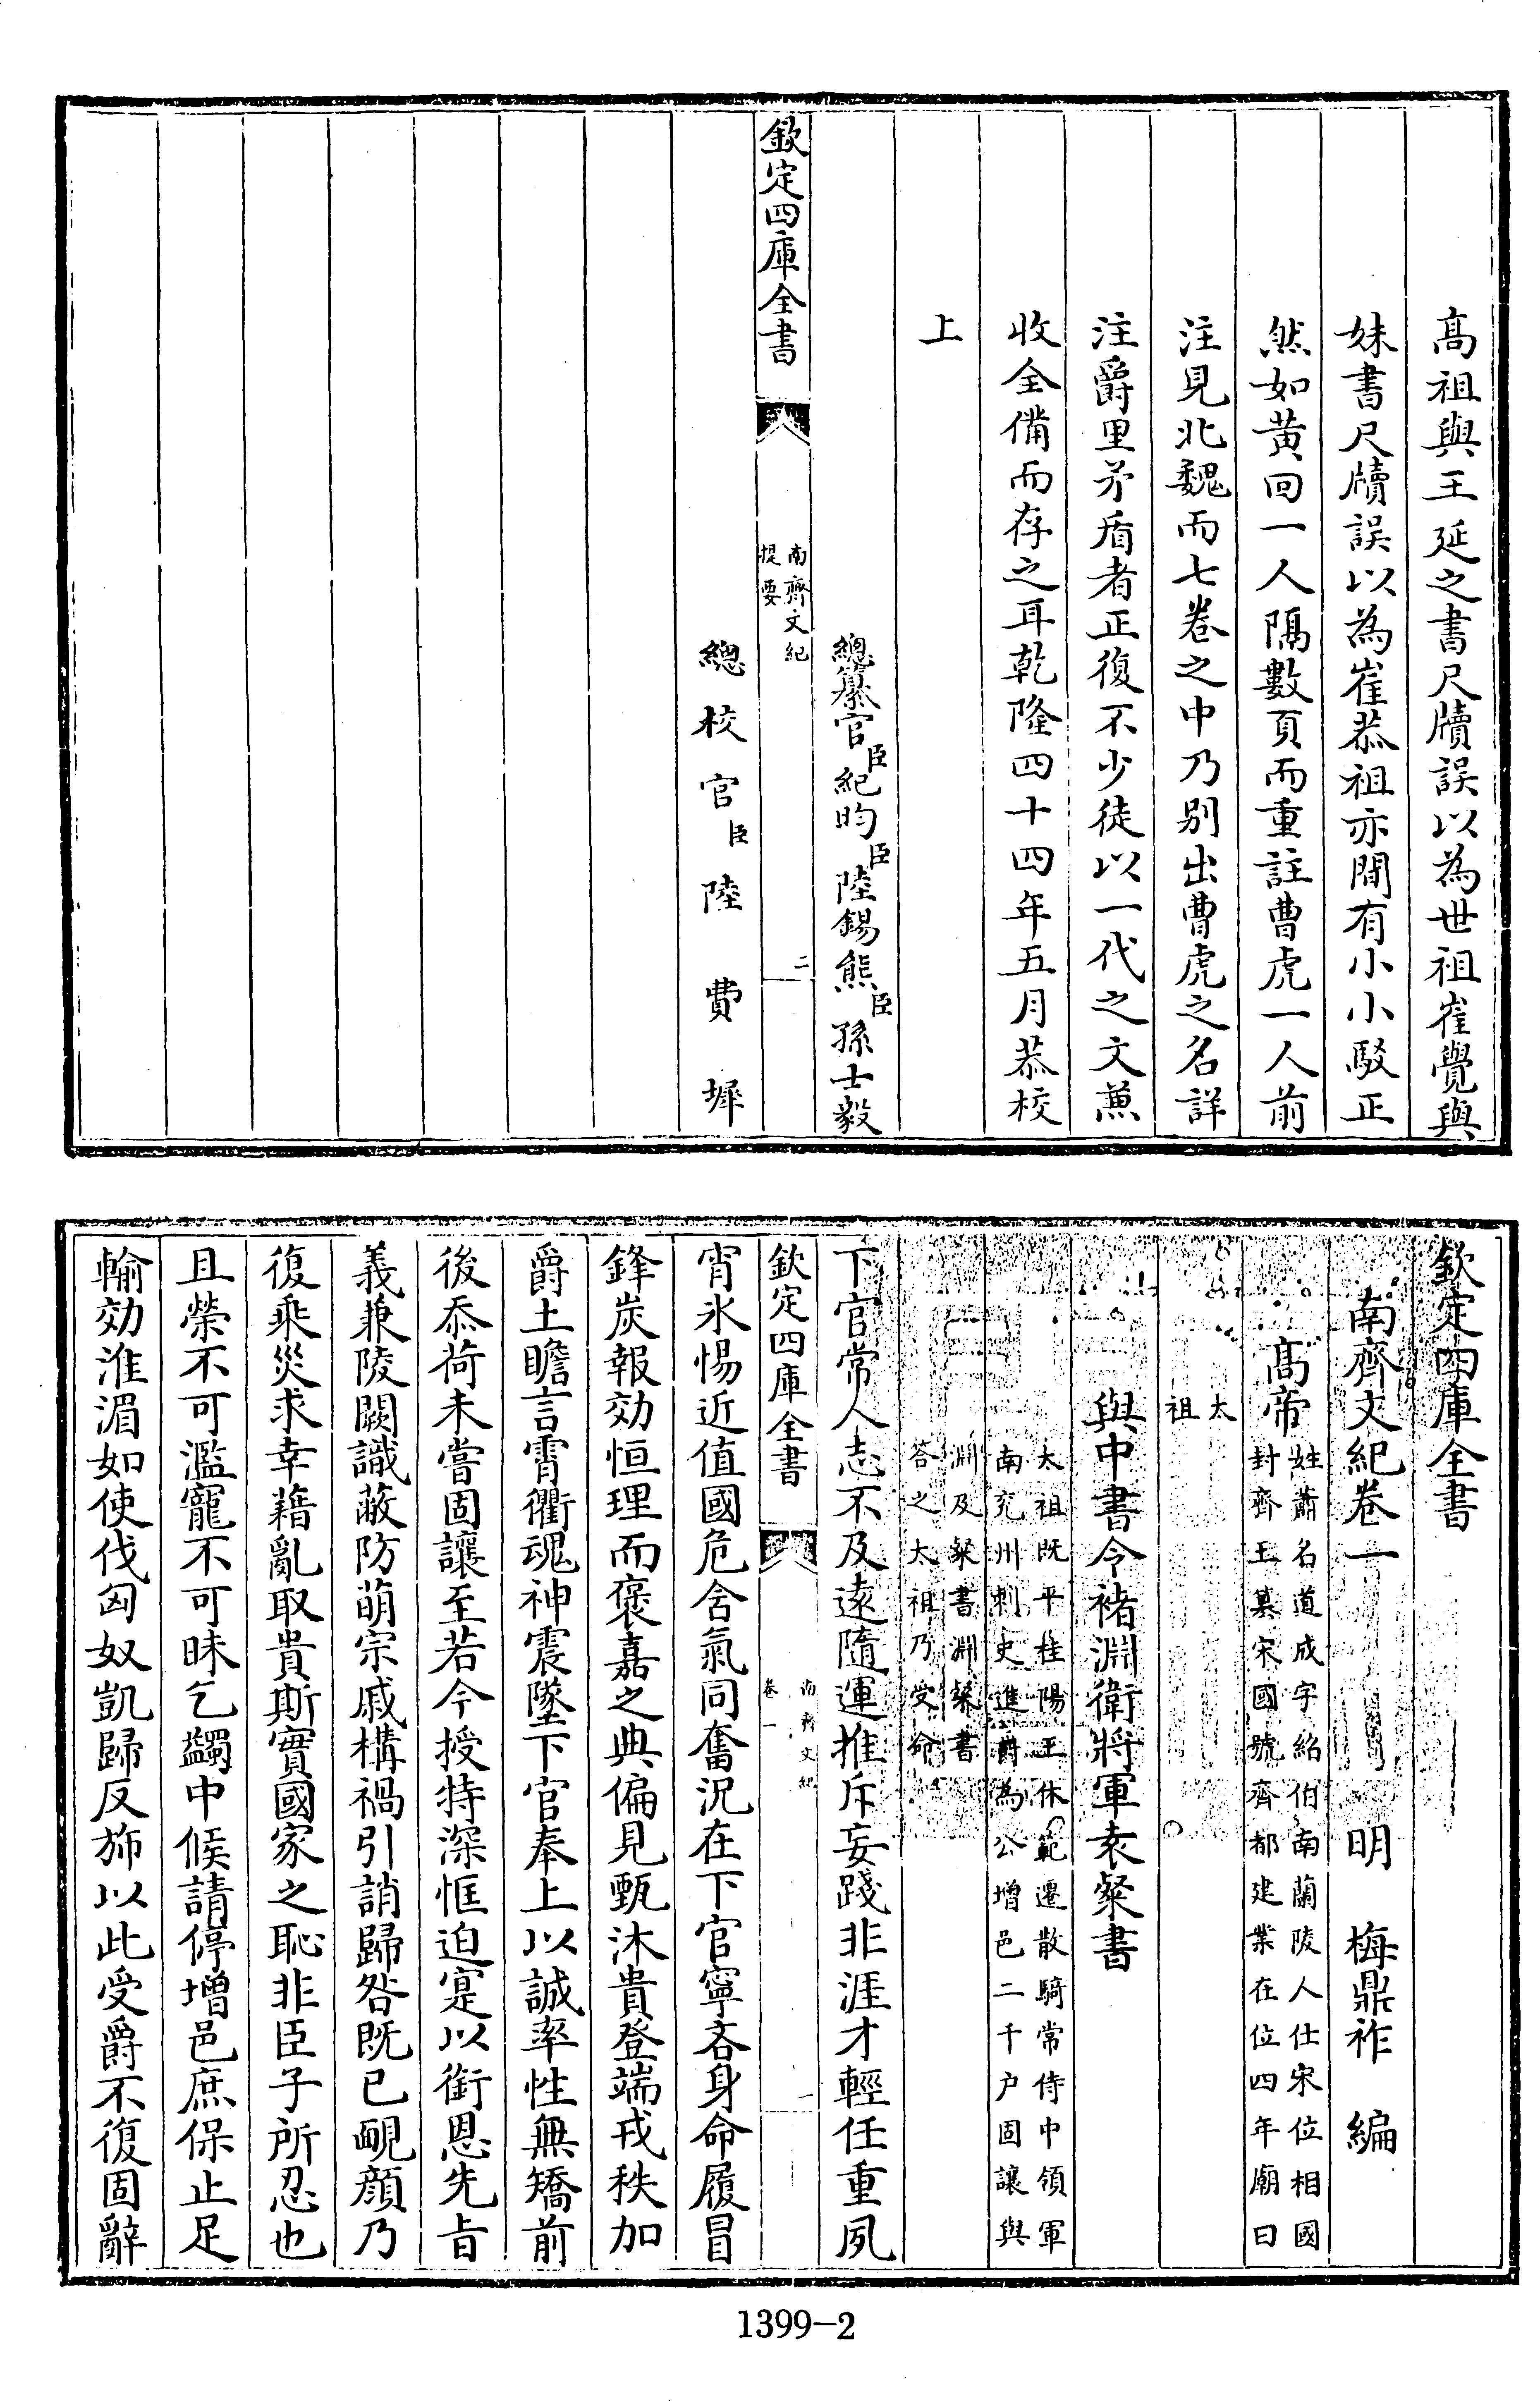 髙祖與王延之書尺牘誤以為世祖崔覺與
妹書尺牘誤以為崔恭祖亦間有小小駁正
然如黄回一人隔數頁而重註曹虎一人前
注見北魏而七卷之中乃别出曹虎之名詳
注爵里矛盾者正復不少徒以一代之文蒹
收全備而存之耳乾隆四十四年五月恭校
上
總纂官臣紀昀臣陸錫熊臣孫士毅
欽定四庫全書
南齊文紀
提要
二
總校官臣陸費墀
欽定四庫全書
南齊文紀卷一
明 梅鼎祚 編
髙帝
姓蕭名道成字紹伯南蘭陵人仕宋位相國
封齊王簒宋國號齊都建業在位四年廟曰
太
祖
與中書令褚淵衛將軍袁粲書
太祖既平桂陽王休範遷散騎常侍中領軍
南兖州刺史進爵為公增邑二千户固讓與
淵及粲書淵粲書
答之太祖乃受命
下官常人志不及遠隨運推斥妄踐非涯才輕任重夙
欽定四庫全書
南齊文紀
卷一
一
宵氷惕近值國危含氣同奮況在下官寧吝身命履冒
鋒炭報効恒理而褒嘉之典偏見甄沐貴登端戎秩加
爵土瞻言霄衢魂神震墜下官奉上以誠率性無矯前
後忝荷未嘗固讓至若今授特深恇迫寔以銜恩先㫖
義兼陵闕識蔽防萌宗戚構禍引誚歸咎既已靦顔乃
復乘災求幸藉亂取貴斯實國家之恥非臣子所忍也
且榮不可濫寵不可昧乞蠲中候請停增邑庶保止足
輸効淮湄如使伐匈奴凱歸反斾以此受爵不復固辭
1399-2